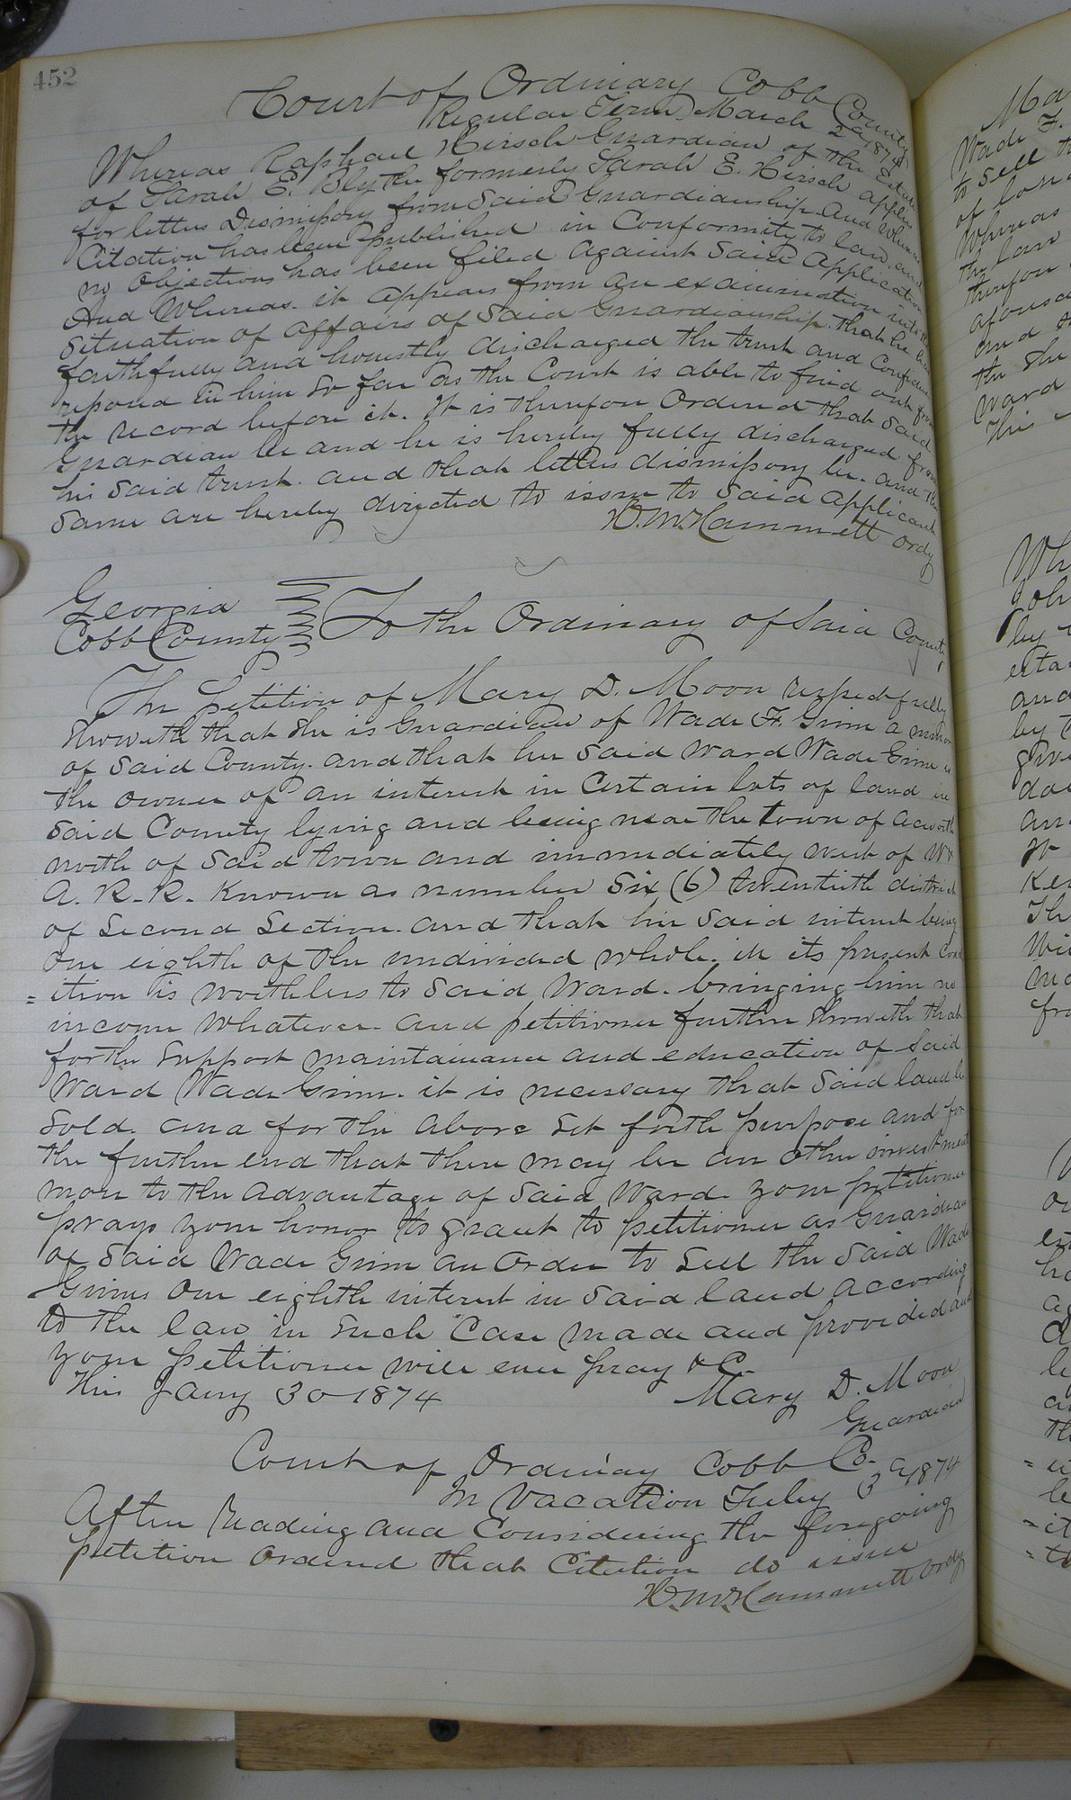 452
Court of Ordinary Cobb County
Regular Term March 2d 1874
Whereas Raphael Hirsch Guardian of the Estate
of Sarah E. Blythe formerly Sarah E. Hirsch applies
for letters Dismissory from Said Guardianship And Whereas
Citation has been published in Conformity to law, and
no Objections has been filed against Said Application
And Whereas it appears from an examination into the
Situation of affairs of Said Guardianship that he has
faithfully and honestly discharged the trust and Confidence
reposed in him So far as the Court is able to find out from
the record before it. It is therefore Ordered that Said
Guardian be and he is hereby fully discharged from
his Said trust and that letters dismissory be and the
Same are hereby directed to issue to Said applicant
H. M. Hammett Ordy
Georgia
Cobb County To the Ordinary of Said County,
The Petition of Mary D. Moon respectfully
Showeth that She is Guardian of Wade F. Ginn a minor
of Said County. and that her Said Ward Wade Ginn is
the Owner of an interest in Certain lots of land in
Said County lying and being near the town of Acworth
north of Said town and immediately west of W &
A. R. R. Known as number Six (6) twentieth district
of Second Section. and that his Said interest being
One eighth of the undivided whole. in its present Cond
=ition is worthless to Said Ward. bringing him no
income whatever and petitioner further Showeth that
for the Support maintainance and education of Said
Ward Wade Ginn. it is necessary that Said land be
Sold. and for the above Set forth purpose and for
the further end that there may be an other investment
more to the advantage of Said Ward. your petitioner
prays your honor to grant to petitioner as Guardian
of Said Wade Ginn an Order to Sell the Said Wade
Ginns One eighth interest in Said land according
to the law in Such Case made and provided and
your petitioner will ever pray &C.
This Jany 30 1874 Mary D. Moon
Guardian
Court of Ordinary Cobb Co.
In Vacation Feby 3d 1874
After Reading and Considering the foregoing
petition Ordered that Citation do issue
H. M. Hammett Ordy
Wade F.
to Sell
of
Whereas
the law
therefore
and
the
Ward
this
by
and
by
and